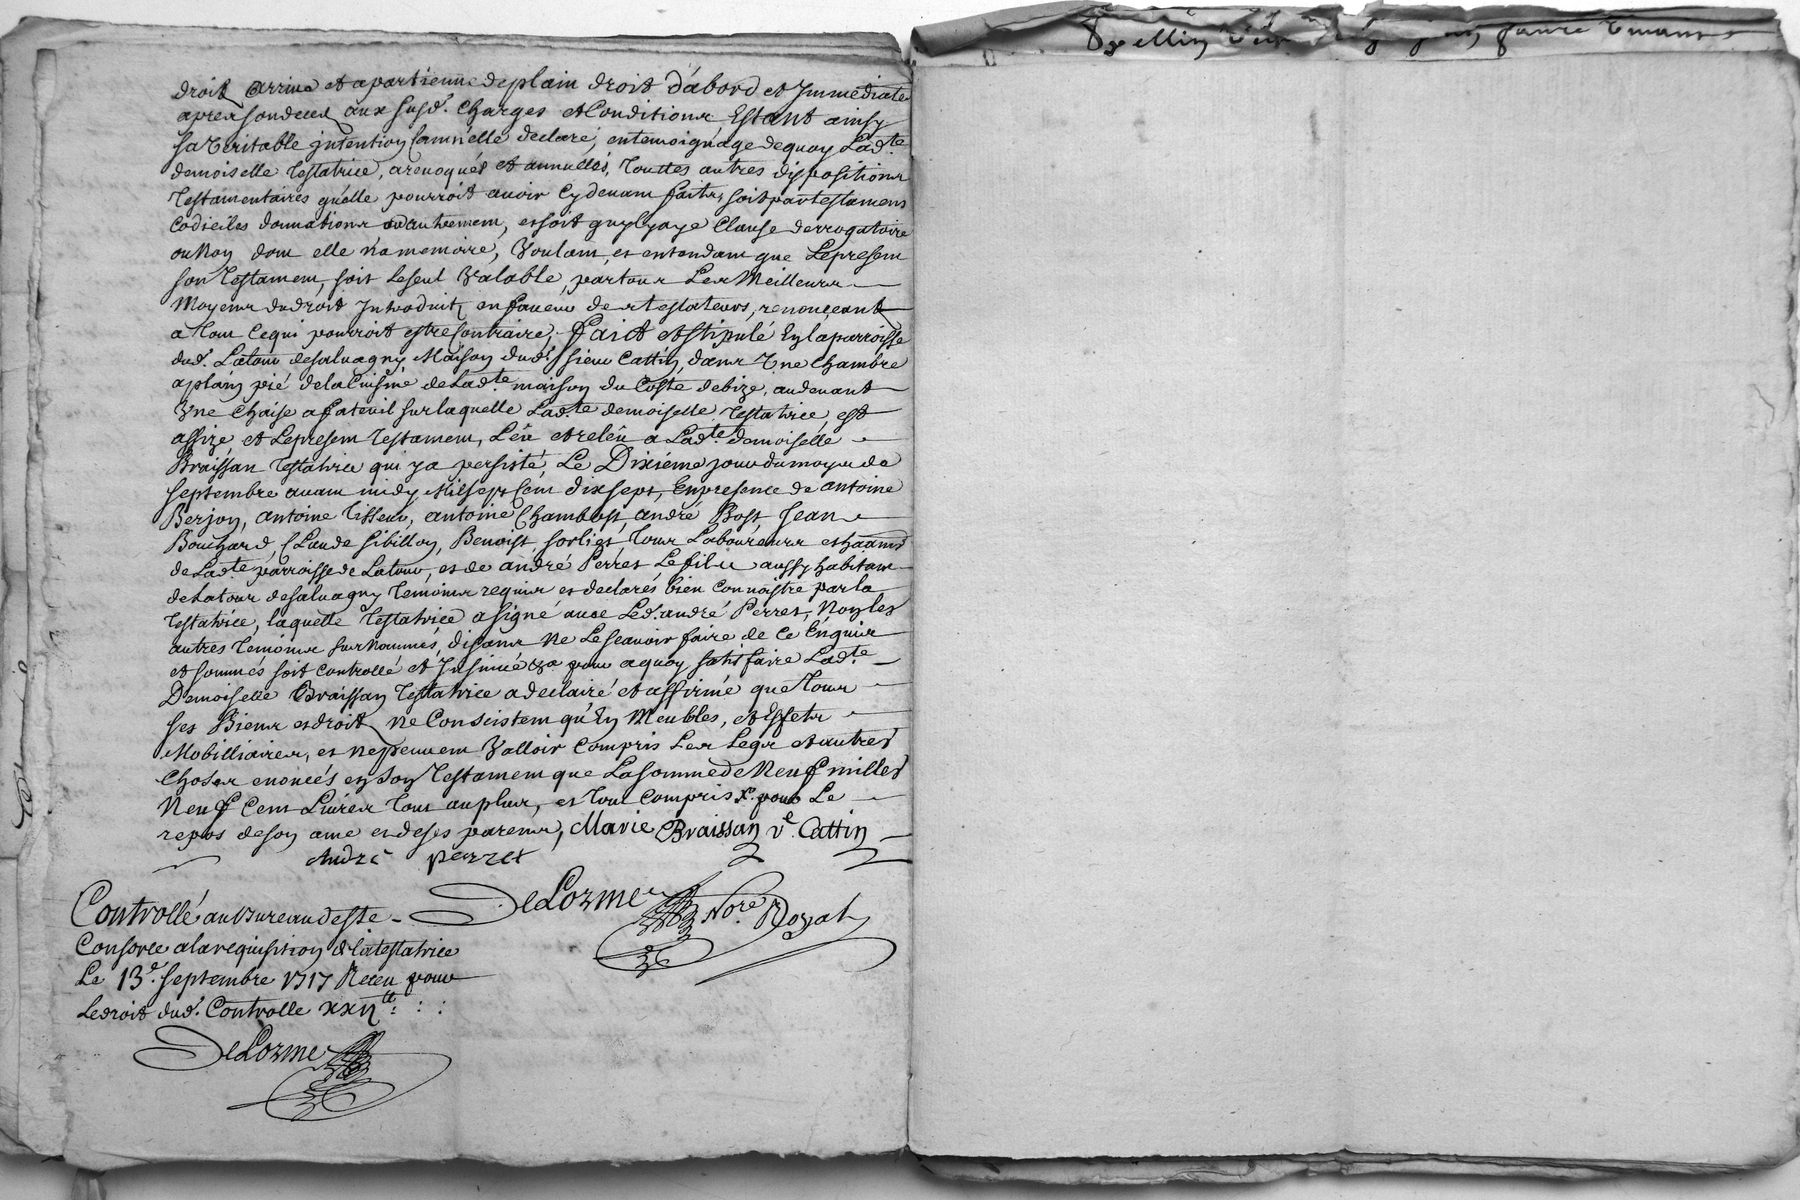 droit arrive et apartienne de plain droit d'abord et Immediate
apres son deced aux susd. Charges et Conditions Estant ainsy
sa Veritable intention Comm'elle declare, en temoignage de quoy Lad.te
demoiselle Testatrice, a revoqués et annullés, Touttes autres dispositions
Testamentaires qu'elle pourroit avoir Cy devant faits, soit par testamens
Codiciles donnations ou autrement, et soit qu'il y aye Clause derrogatoire
ou Non dont elle n'a memoire, Voulant et entendant que Le present
son Testament, soit Le seul Valable, par tous Les Meilleurs
Moyens du droit Introduit en faveur des testateurs, renonçeant
a Tout Ce qui pourroit estre Contraire, fait et stipulé En la parroisse
dud. Latour de salvagny Maison dud. sieur Cattin, dans Une Chambre
a plain pié de la Cuisine de Lad.te maison du Costé de bize, au devant
Une Chaise a fateuil sur laquelle Lad.te demoiselle Testatrice est
assize et Le present Testament, Leu et releu a Lad.te demoiselle
Braissan Testatrice qui y a persisté, Le Dixieme jour du moys de
septembre avant midy Mil sept Cent dix sept, En presence de antoine
Berjon, antoine Tisseur, antoine Chambost, andré Bost, Jean
Bouchard, Claude sibillon, Benoist sorlier Tous Laboureurs et haants
de Lad.te parroisse de Latour, et de andré Perret Le fils aussy habitant
de Latour de salvagny Temoins requis et declarés bien Connoistre par la
Testatrice, laquelle Testatrice a signé avec Led. andré Perret, Non les
autres Temoins surnommés, disans Ne Le scavoir faire de Ce Enquis
et sommés soit Controllé et Insinué &a pour a quoy satisfaire Lad.te
Demoiselle Braissan Testatrice a declairé et affirmé que Tous
ses Biens et droit Ne Consistent qu'En Meubles, et Effets
Mobilliaires, et Ne peuvent Valloir Compris Les Legs et autres
Choses enoncés en son Testament que La somme de Neuf milles
Neuf Cent Livres Tout au plus, et Tout Compris pour Le
repos de son ame et de ses parens, Marie Braissan v.e Cattin
André perret
DeLorme No.re Royal
Controllé au Bureau de ste
Consorce a la requisition de la testatrice
Le 13.e septembre 1717 Receu pour
Le droit dud. Controlle xxii tt
DeLorme